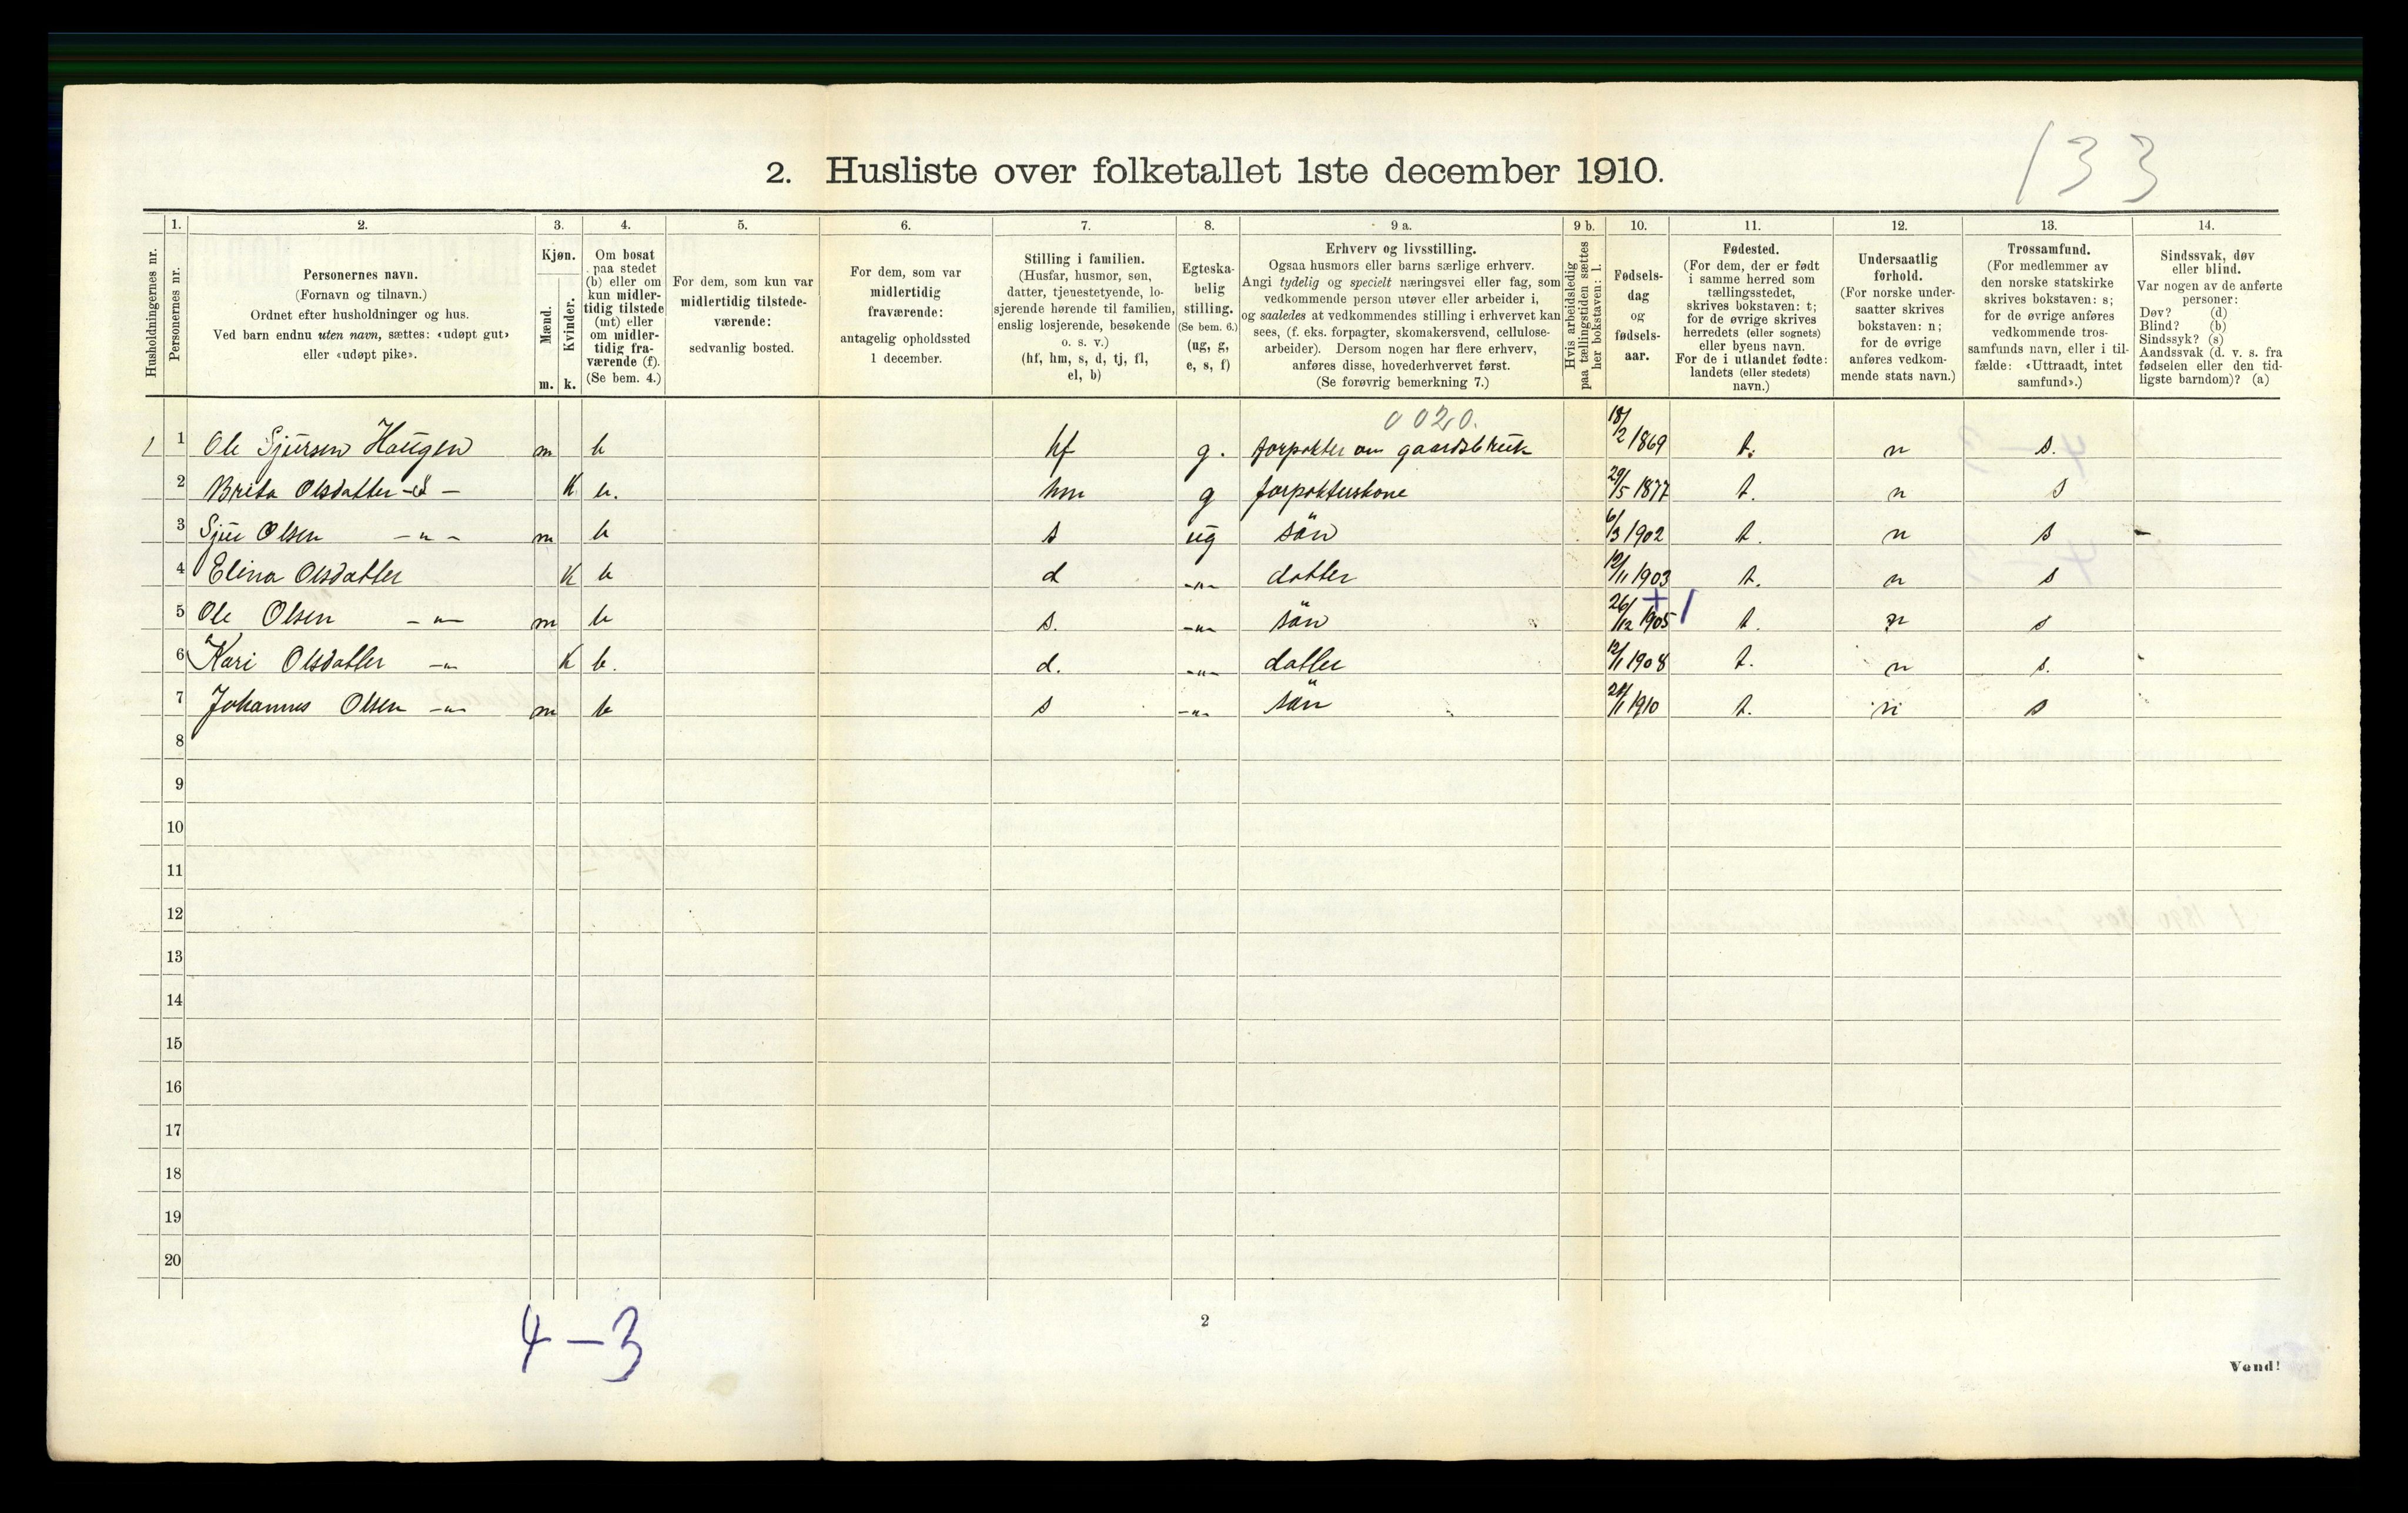 133
2. Husliste over folketallet 1ste december 1910.
Husholdningernes nr.
1.
Personernes nr.
2.
Personernes navn.
(Fornavn og tilnavn.)
Ordnet efter husholdninger og hus.
Ved barn endnu uten navn, sættes: «udøpt gut»
eller «udøpt pike».
3.
Kjøn.
Mænd.
m.
Kvinder.
k.
4.
Om bosat
paa stedet
(b) eller om
kun midler-
tidig tilstede
(mt) eller
om midler-
tidig fra-
værende (f).
(Se bem. 4.)
5.
For dem, som kun var
midlertidig tilstede-
værende:
sedvanlig bosted.
6.
For dem, som var
midlertidig
fraværende:
antagelig opholdssted
1 december.
7.
Stilling i familien.
(Husfar, husmor, søn,
datter, tjenestetyende, lo-
sjerende hørende til familien,
enslig losjerende, besøkende
o. s. v.)
(hf, hm, s, d, tj, fl,
el, b)
8.
Egteska-
belig
stilling.
(Se bem. 6.)
(ug, g,
e, s, f)
9 a.
Erhverv og livsstilling.
Ogsaa husmors eller barns særlige erhverv.
Angi tydelig og specielt næringsvei eller fag, som
vedkommende person utøver eller arbeider i,
og saaledes at vedkommendes stilling i erhvervet kan
sees, (f. eks. forpagter, skomakersvend, cellulose-
arbeider). Dersom nogen har flere erhverv,
anføres disse, hovederhvervet først.
(Se forøvrig bemerkning 7.)
9 b.
Hvis arbeidsledig
paa tællingstiden sættes
her bokstaven: l.
10.
Fødsels-
dag
og
fødsels-
aar.
11.
Fødested.
(For dem, der er født
i samme herred som
tællingsstedet,
skrives bokstaven: t;
for de øvrige skrives
herredets (eller sognets)
eller byens navn.
For de i utlandet fødte:
landets (eller stedets)
navn.)
12.
Undersaatlig
forhold.
(For norske under-
saatter skrives
bokstaven: n;
for de øvrige
anføres vedkom-
mende stats navn.)
13.
Trossamfund.
(For medlemmer av
den norske statskirke
skrives bokstaven: s;
for de øvrige anføres
vedkommende tros-
samfunds navn, eller i til-
fælde: «Uttraadt, intet
samfund».)
14.
Sindssvak, døv
eller blind.
Var nogen av de anførte
personer:
Døv? (d)
Blind? (b)
Sindssyk? (s)
Aandssvak (d. v. s. fra
fødselen eller den tid-
ligste barndom)? (a)
0020.
1 1 Ole Sjursen Haugen m b hf g. forpakter om gaardsbruk 18/2 1869 t. n s.
2 Brita Olsdatter -"- K b. hm g forpakterskone 29/5 1877 t. n s
3 Sjur Olsen -"- m b s ug sön 6/3 1902 t. n s -
4 Elina Olsdatter K b d -"- datter 12/11 1903 t. n s
5 Ole Olsen -"- m b s. -"- sön 26/12 1905 + 1 t. n s
6 Kari Olsdatter -"- K b. d. -"- datter 12/1 1908 t. n s.
7 Johannes Olsen -"- m b s -"- sön /1 1910 t. n s
8
9
10
11
12
13
14
15
16
17
18
19
20
4 — 3
2
Vend!